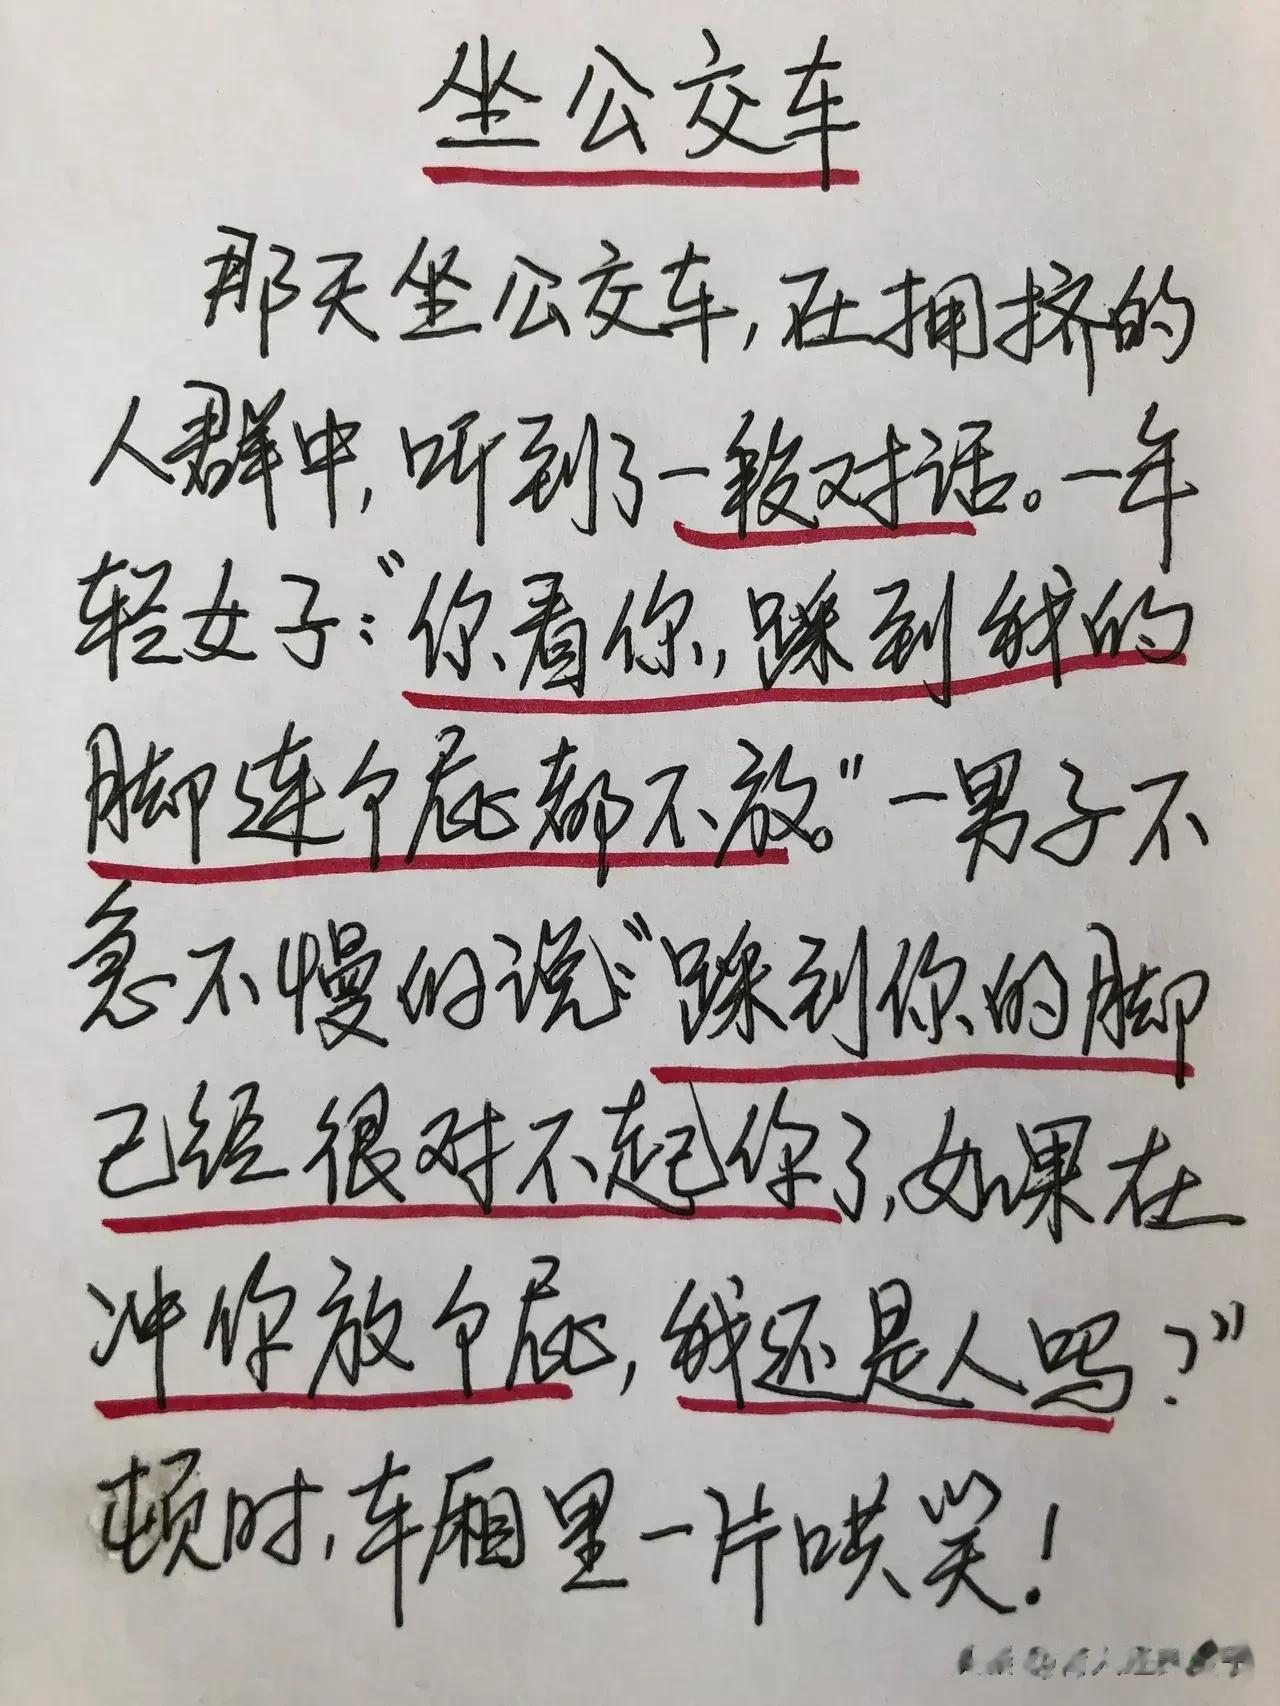 坐公交车
那天坐公交车,在拥挤的
人群中,听到了一段对话。一年
轻女子:“你看你,踩到我的
脚连个屁都不放。”一男子不
急不慢的说:“踩到你的脚
已经很对不起你了,如果在
冲你放个屁,我还是人吗?”
顿时,车厢里一片哄笑!